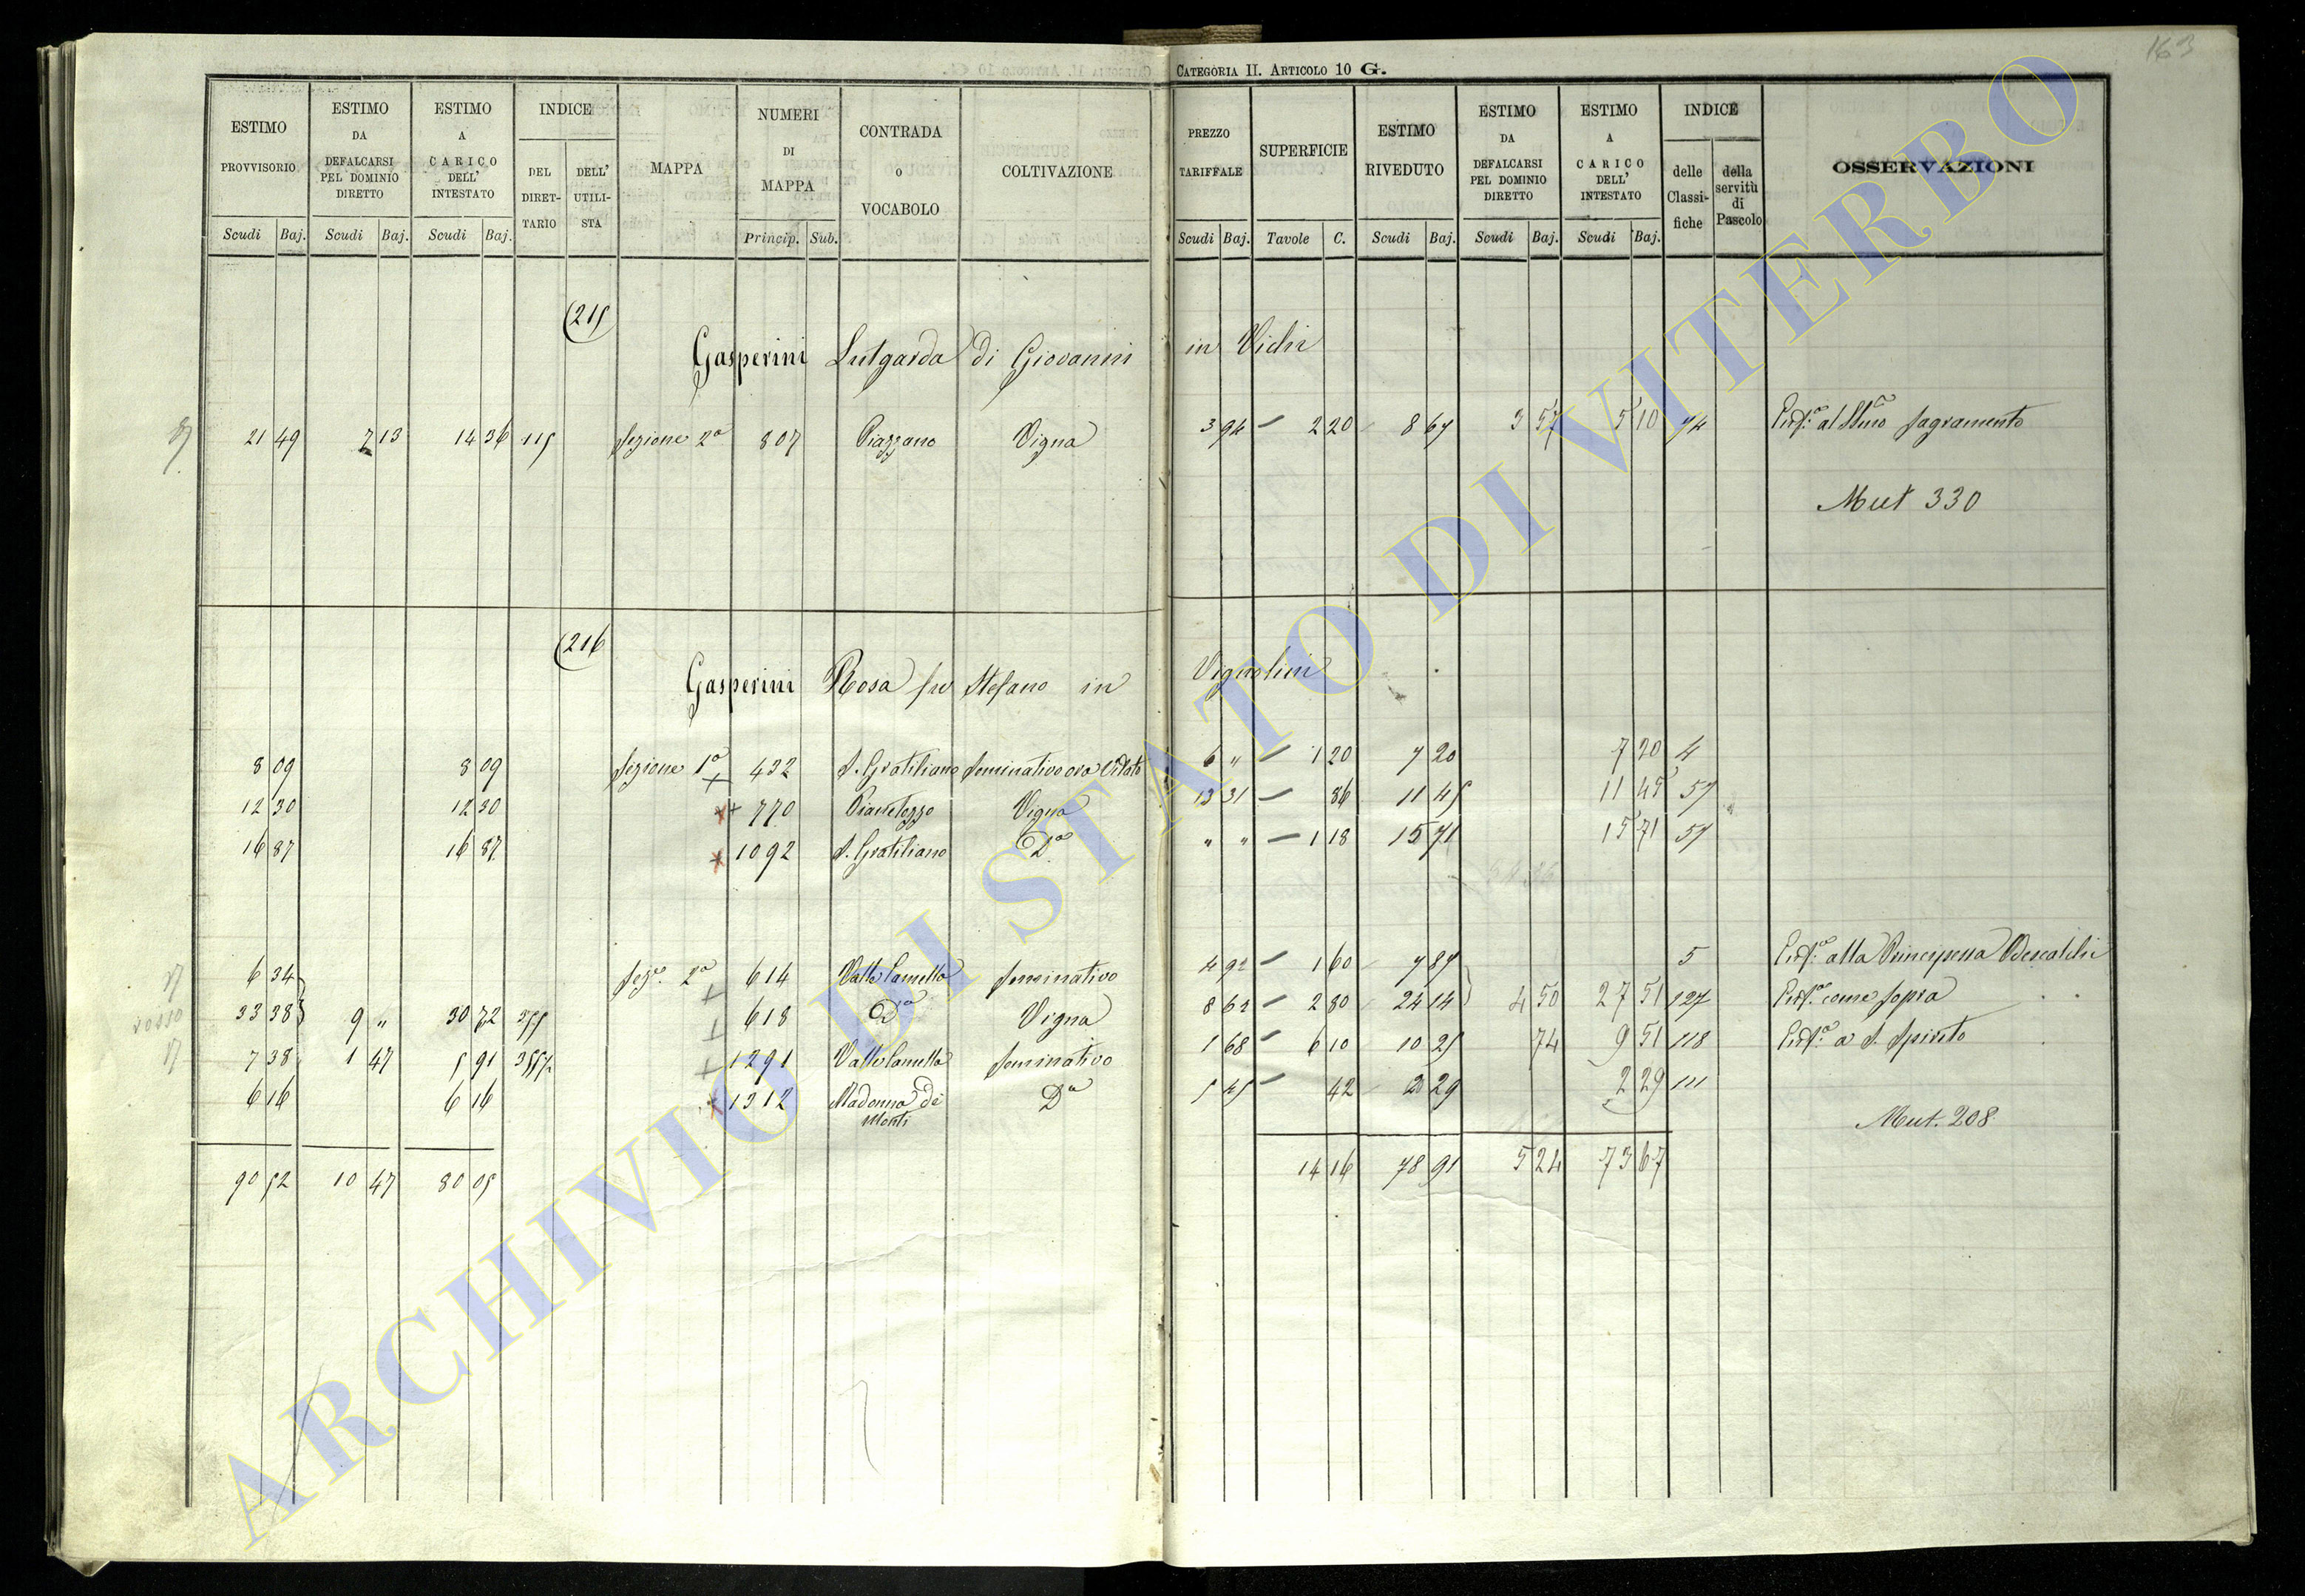 163
CATEGORIA II. ARTICOLO 10 G.
ESTIMO PROVVISORIO | ESTIMO DA DEFALCARSI PEL DOMINIO DIRETTO | ESTIMO A CARICO DELL' INTESTATO | INDICE | MAPPA | NUMERI DI MAPPA | CONTRADA O VOCABOLO | COLTIVAZIONE | PREZZO TARIFFALE | SUPERFICIE | ESTIMO RIVEDUTO | ESTIMO DA DEFALCARSI PEL DOMINIO DIRETTO | ESTIMO A CARICO DELL' INTESTATO | INDICE | OSSERVAZIONI
DEL DIRETTARIO | DELL' UTILISTA | delle Classifiche | della servitù di Pascolo
Scudi Baj. Scudi Baj. Scudi Baj. Princip. Sub. Scudi Baj. Tavole C. Scudi Baj. Scudi Baj. Scudi Baj.
(215
Gasperini Lutgarda di Giovanni in Vichi
21 49 7 13 14 36 115 Sezione 2a 807 Piazzano Vigna 3 94 — 2 20 8 67 3 57 5 10 74 al SSmo Sagramento
Mut 330
(216
Gasperini Rosa fu Stefano in Vignolini
8 09 8 09 Sezione 1a + 432 S. Gratiliano Seminativo ora Vitato 6 " — 1 20 7 20 7 20 4
12 30 12 30 x+ 770 Pianetozzo Vigna 13 31 — 86 11 45 11 45 57
16 87 16 87 x 1092 S. Gratiliano Da " " — 1 18 15 71 15 71 57
6 34 Seze 2a + 614 Valle Camella Seminativo 4 92 — 1 60 7 87 5 alla Principessa Odescalchi
rosso 33 38 9 " 30 72 + 618 Da Vigna 8 62 — 2 80 24 14 4 50 27 51 127 come sopra
7 38 1 47 5 91 + 1291 Valle Camella Seminativo 1 68 — 6 10 10 25 74 9 51 118 a S. Spirito
6 16 6 16 x 1312 Madonna de Monti Da 5 45 — 42 2 29 2 29 111
Mut. 208
90 52 10 47 80 05 14 16 78 91 5 24 73 67
ARCHIVIO DI STATO DI VITERBO